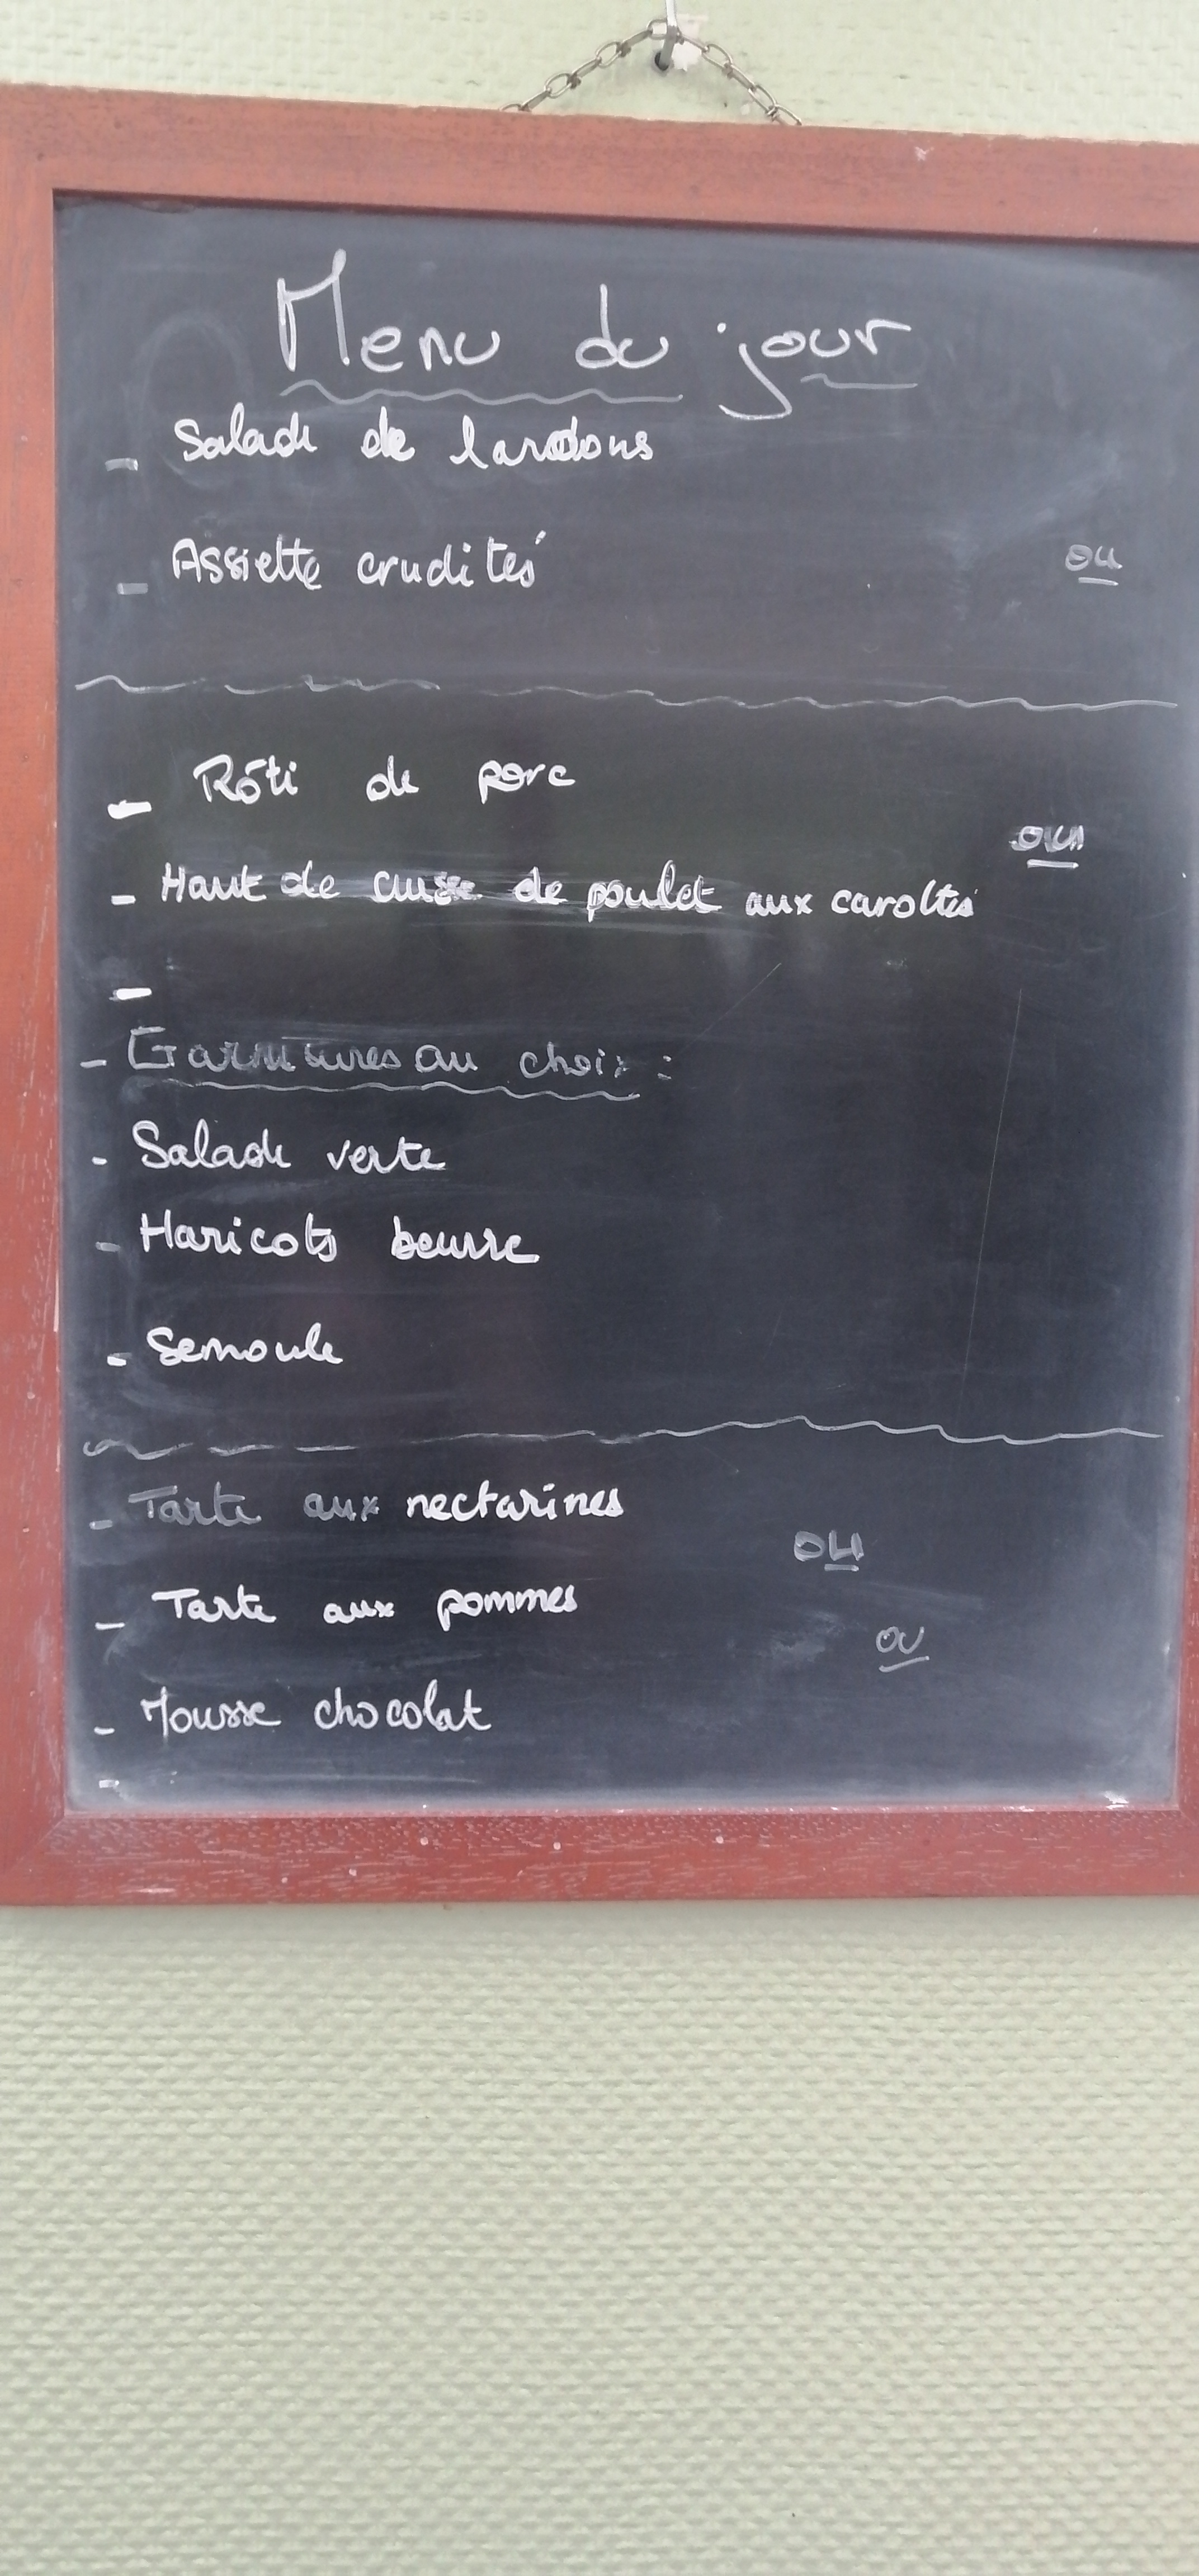 Menu du jour
- Salade de lardons
ou
- Assiette crudités
- Rôti de porc
ou
- Haut de cuisse de poulet aux carottes
-
- Garnitures au choix :
- Salade verte
- Haricots beurre
- Semoule
- Tarte aux nectarines
ou
- Tarte aux pommes
ou
- Mousse chocolat
-